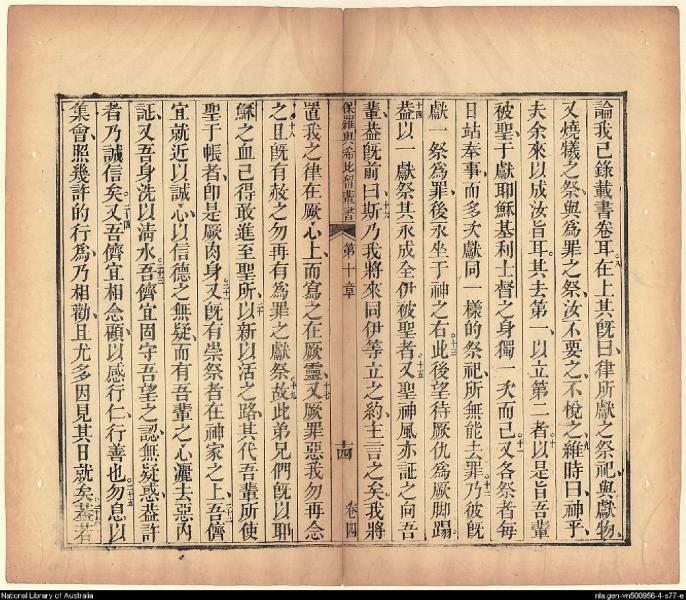 論我已錄載書卷耳在上其旣曰律所獻之祭祀與獻物
又燒犧之祭與為罪之祭汝不要之不悅之維時曰神乎
夫余來以成汝旨耳其去第一以立第二者以是旨吾輩
被聖于獻耶穌基利士督之身獨一次而已又各祭者每
日站奉事而多次獻同一樣的祭祀所無能去罪乃彼旣
獻一祭為罪後永坐于神之右此後望待厥仇為厥脚踢
葢以一獻祭其永成全伊被聖者又聖神風亦証之向吾
輩葢旣前曰斯乃我將來同伊等立之約主言之矣我將
保羅與希比留輩書 第十章 卷四
置我之律在厥心上而寫之在厥靈又厥罪惡我勿再念
之且旣有赦之勿再有為罪之獻祭故此弟兄們旣以耶
穌之血已得敢進至聖所以新以活之路其代吾輩所使
聖于帳者卽是厥肉身又旣有崇祭者在神家之上吾儕
宜就近以誠心以信德之無疑而有吾輩之心灑去惡內
証又吾身洗以清水吾儕宜固守吾望之認無疑惑葢許
者乃誠信矣又吾儕宜相念顧以感行仁行善也勿息以
集會照幾許的行為乃相勸且尤多因見其日就矣葢若
National Library of Australia
nla.gen-vn500956-4-s77-e